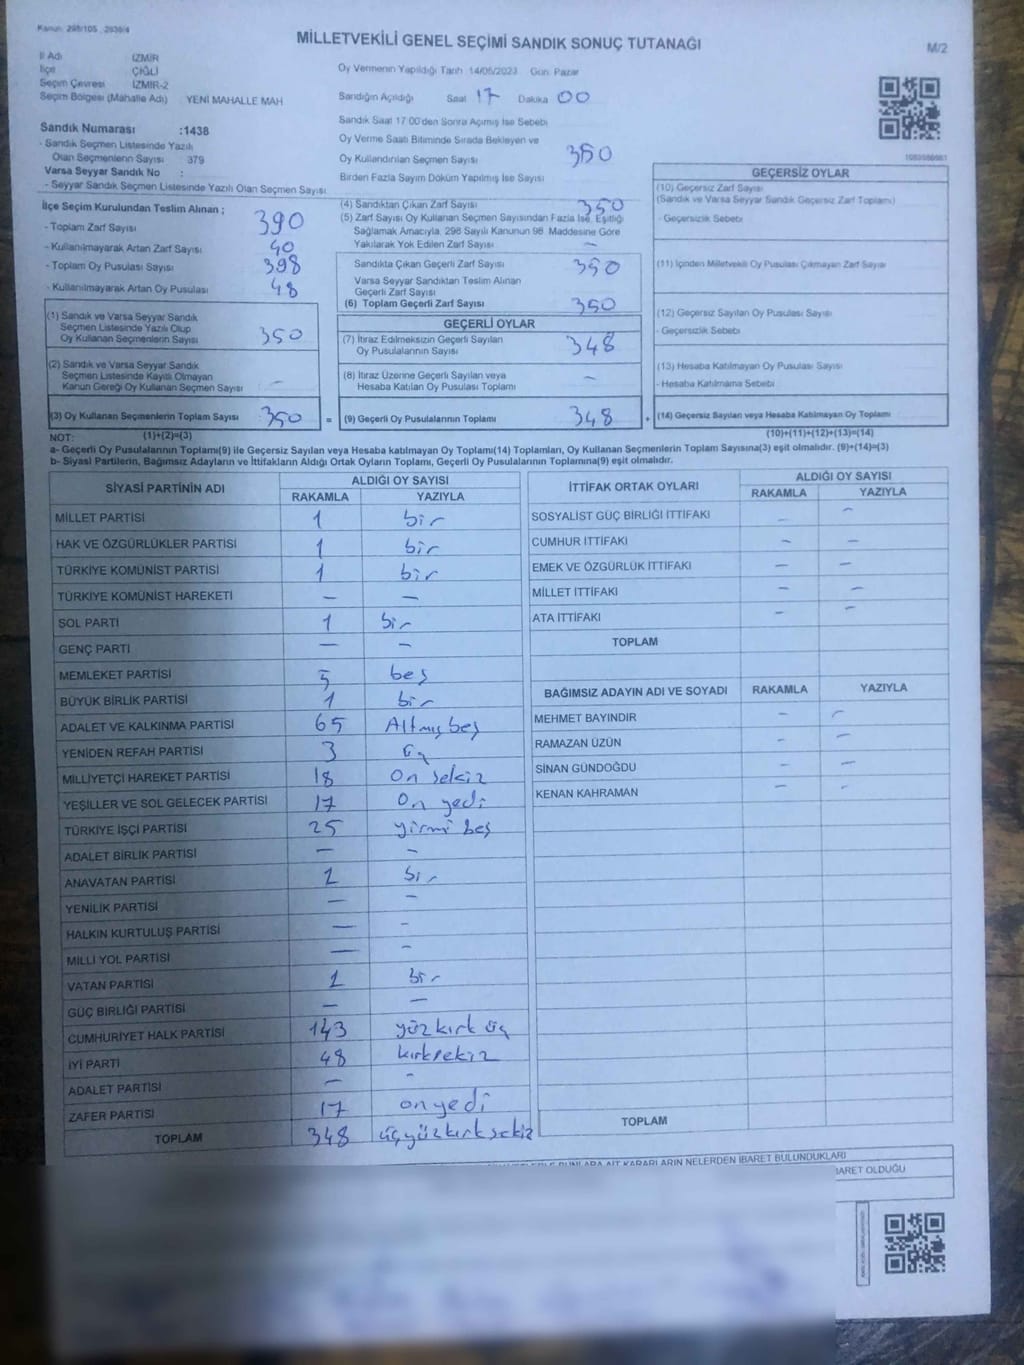 Kanun: 298/105 , 2839/4
MİLLETVEKİLİ GENEL SEÇİMİ SANDIK SONUÇ TUTANAĞI
M/2
İl Adı İZMİR
İlçe ÇİĞLİ
Seçim Çevresi İZMİR-2
Seçim Bölgesi (Mahalle Adı) YENİ MAHALLE MAH
Oy Vermenin Yapıldığı Tarih 14/05/2023 Gün: Pazar
Sandığın Açıldığı Saat 17 Dakika 00
Sandık Saat 17:00'den Sonra Açılmış İse Sebebi
Sandık Numarası :1438
- Sandık Seçmen Listesinde Yazılı
Olan Seçmenlerin Sayısı 379
Varsa Seyyar Sandık No :
- Seyyar Sandık Seçmen Listesinde Yazılı Olan Seçmen Sayısı
Oy Verme Saati Bitiminde Sırada Bekleyen ve
Oy Kullandırılan Seçmen Sayısı 350
Birden Fazla Sayım Döküm Yapılmış İse Sayısı
İlçe Seçim Kurulundan Teslim Alınan ;
- Toplam Zarf Sayısı 390
- Kullanılmayarak Artan Zarf Sayısı 40
- Toplam Oy Pusulası Sayısı 398
- Kullanılmayarak Artan Oy Pusulası 48
(4) Sandıktan Çıkan Zarf Sayısı 350
(5) Zarf Sayısı Oy Kullanan Seçmen Sayısından Fazla İse, Eşitliği
Sağlamak Amacıyla, 298 Sayılı Kanunun 98. Maddesine Göre
Yakılarak Yok Edilen Zarf Sayısı —
Sandıkta Çıkan Geçerli Zarf Sayısı 350
Varsa Seyyar Sandıktan Teslim Alınan
Geçerli Zarf Sayısı
(6) Toplam Geçerli Zarf Sayısı 350
(1) Sandık ve Varsa Seyyar Sandık
Seçmen Listesinde Yazılı Olup
Oy Kullanan Seçmenlerin Sayısı 350
(2) Sandık ve Varsa Seyyar Sandık
Seçmen Listesinde Kayıtlı Olmayan
Kanun Gereği Oy Kullanan Seçmen Sayısı —
(3) Oy Kullanan Seçmenlerin Toplam Sayısı 350 =
(1)+(2)=(3)
GEÇERLİ OYLAR
(7) İtiraz Edilmeksizin Geçerli Sayılan
Oy Pusulalarının Sayısı 348
(8) İtiraz Üzerine Geçerli Sayılan veya
Hesaba Katılan Oy Pusulası Toplamı —
(9) Geçerli Oy Pusulalarının Toplamı 348 +
GEÇERSİZ OYLAR
(10) Geçersiz Zarf Sayısı
(Sandık ve Varsa Seyyar Sandık Geçersiz Zarf Toplamı)
- Geçersizlik Sebebi
(11) İçinden Milletvekili Oy Pusulası Çıkmayan Zarf Sayısı
(12) Geçersiz Sayılan Oy Pusulası Sayısı
- Geçersizlik Sebebi
(13) Hesaba Katılmayan Oy Pusulası Sayısı
- Hesaba Katılmama Sebebi
(14) Geçersiz Sayılan veya Hesaba Katılmayan Oy Toplamı
(10)+(11)+(12)+(13)=(14)
NOT:
a- Geçerli Oy Pusulalarının Toplamı(9) ile Geçersiz Sayılan veya Hesaba Katılmayan Oy Toplamı(14) Toplamları, Oy Kullanan Seçmenlerin Toplam Sayısına(3) eşit olmalıdır. (9)+(14)=(3)
b- Siyasi Partilerin, Bağımsız Adayların ve İttifakların Aldığı Ortak Oyların Toplamı, Geçerli Oy Pusulalarının Toplamına(9) eşit olmalıdır.
SİYASİ PARTİNİN ADI ALDIĞI OY SAYISI
RAKAMLA YAZIYLA
MİLLET PARTİSİ 1 bir
HAK VE ÖZGÜRLÜKLER PARTİSİ 1 bir
TÜRKİYE KOMÜNİST PARTİSİ 1 bir
TÜRKİYE KOMÜNİST HAREKETİ — —
SOL PARTİ 1 bir
GENÇ PARTİ — —
MEMLEKET PARTİSİ 5 beş
BÜYÜK BİRLİK PARTİSİ 1 bir
ADALET VE KALKINMA PARTİSİ 65 Altmış beş
YENİDEN REFAH PARTİSİ 3 üç
MİLLİYETÇİ HAREKET PARTİSİ 18 On sekiz
YEŞİLLER VE SOL GELECEK PARTİSİ 17 On yedi
TÜRKİYE İŞÇİ PARTİSİ 25 yirmi beş
ADALET BİRLİK PARTİSİ — —
ANAVATAN PARTİSİ 1 bir
YENİLİK PARTİSİ — —
HALKIN KURTULUŞ PARTİSİ — —
MİLLİ YOL PARTİSİ — —
VATAN PARTİSİ 1 bir
GÜÇ BİRLİĞİ PARTİSİ — —
CUMHURİYET HALK PARTİSİ 143 yüz kırk üç
İYİ PARTİ 48 kırksekiz
ADALET PARTİSİ — -
ZAFER PARTİSİ 17 onyedi
TOPLAM 348 üçyüzkırksekiz
İTTİFAK ORTAK OYLARI ALDIĞI OY SAYISI
RAKAMLA YAZIYLA
SOSYALİST GÜÇ BİRLİĞİ İTTİFAKI — —
CUMHUR İTTİFAKI — —
EMEK VE ÖZGÜRLÜK İTTİFAKI — —
MİLLET İTTİFAKI — —
ATA İTTİFAKI — —
TOPLAM
BAĞIMSIZ ADAYIN ADI VE SOYADI RAKAMLA YAZIYLA
MEHMET BAYINDIR — —
RAMAZAN ÜZÜN — —
SİNAN GÜNDOĞDU — —
KENAN KAHRAMAN — —
TOPLAM
KARARLARIN NELERDEN İBARET BULUNDUKLARI
İBARET OLDUĞU